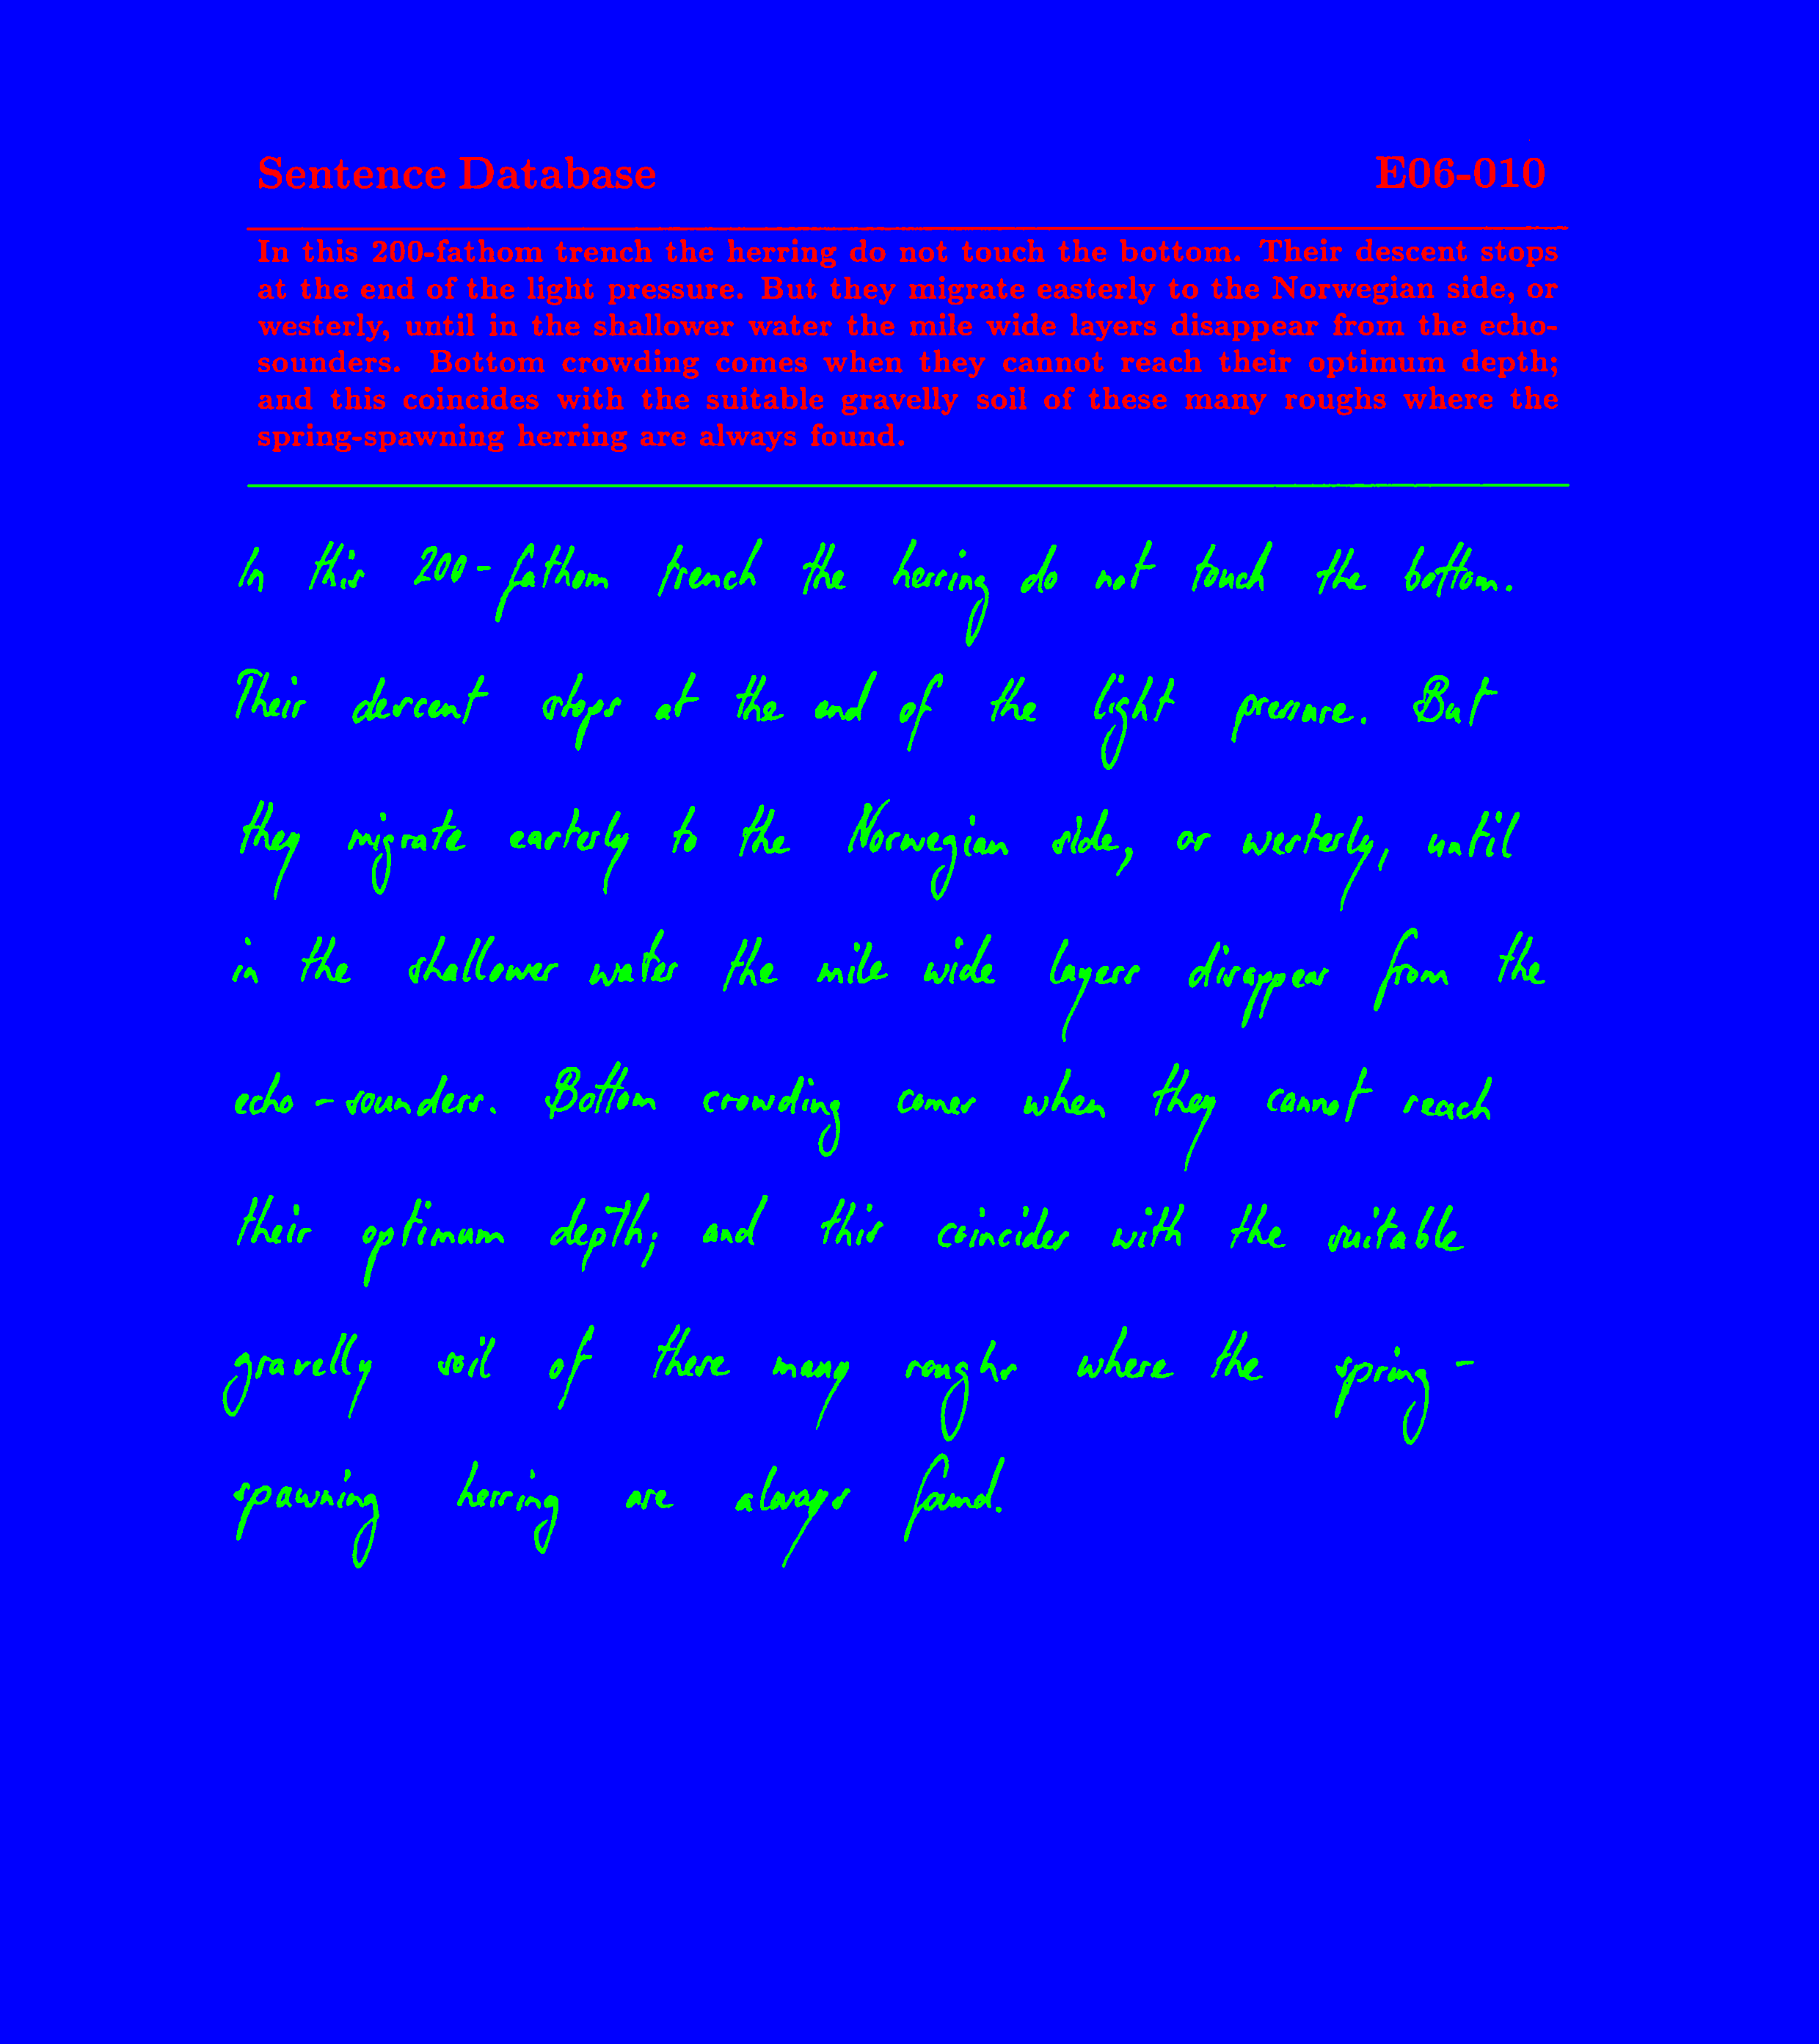 Sentence Database E06-010
In this 200-fathom trench the herring do not touch the bottom. Their descent stops
at the end of the light pressure. But they migrate easterly to the Norwegian side, or
westerly, until in the shallower water the mile wide layers disappear from the echo-
sounders. Bottom crowding comes when they cannot reach their optimum depth;
and this coincides with the suitable gravelly soil of these many roughs where the
spring-spawning herring are always found.
In this 200-fathom trench the herring do not touch the bottom.
Their descent stops at the end of the light pressure. But
they migrate easterly to the Norwegian side, or westerly, until
in the shallower water the mile wide layers disappear from the
echo-sounders. Bottom crowding comes when they cannot reach
their optimum depth; and this coincides with the suitable
gravelly soil of these many roughs where the spring-
spawning herring are always found.